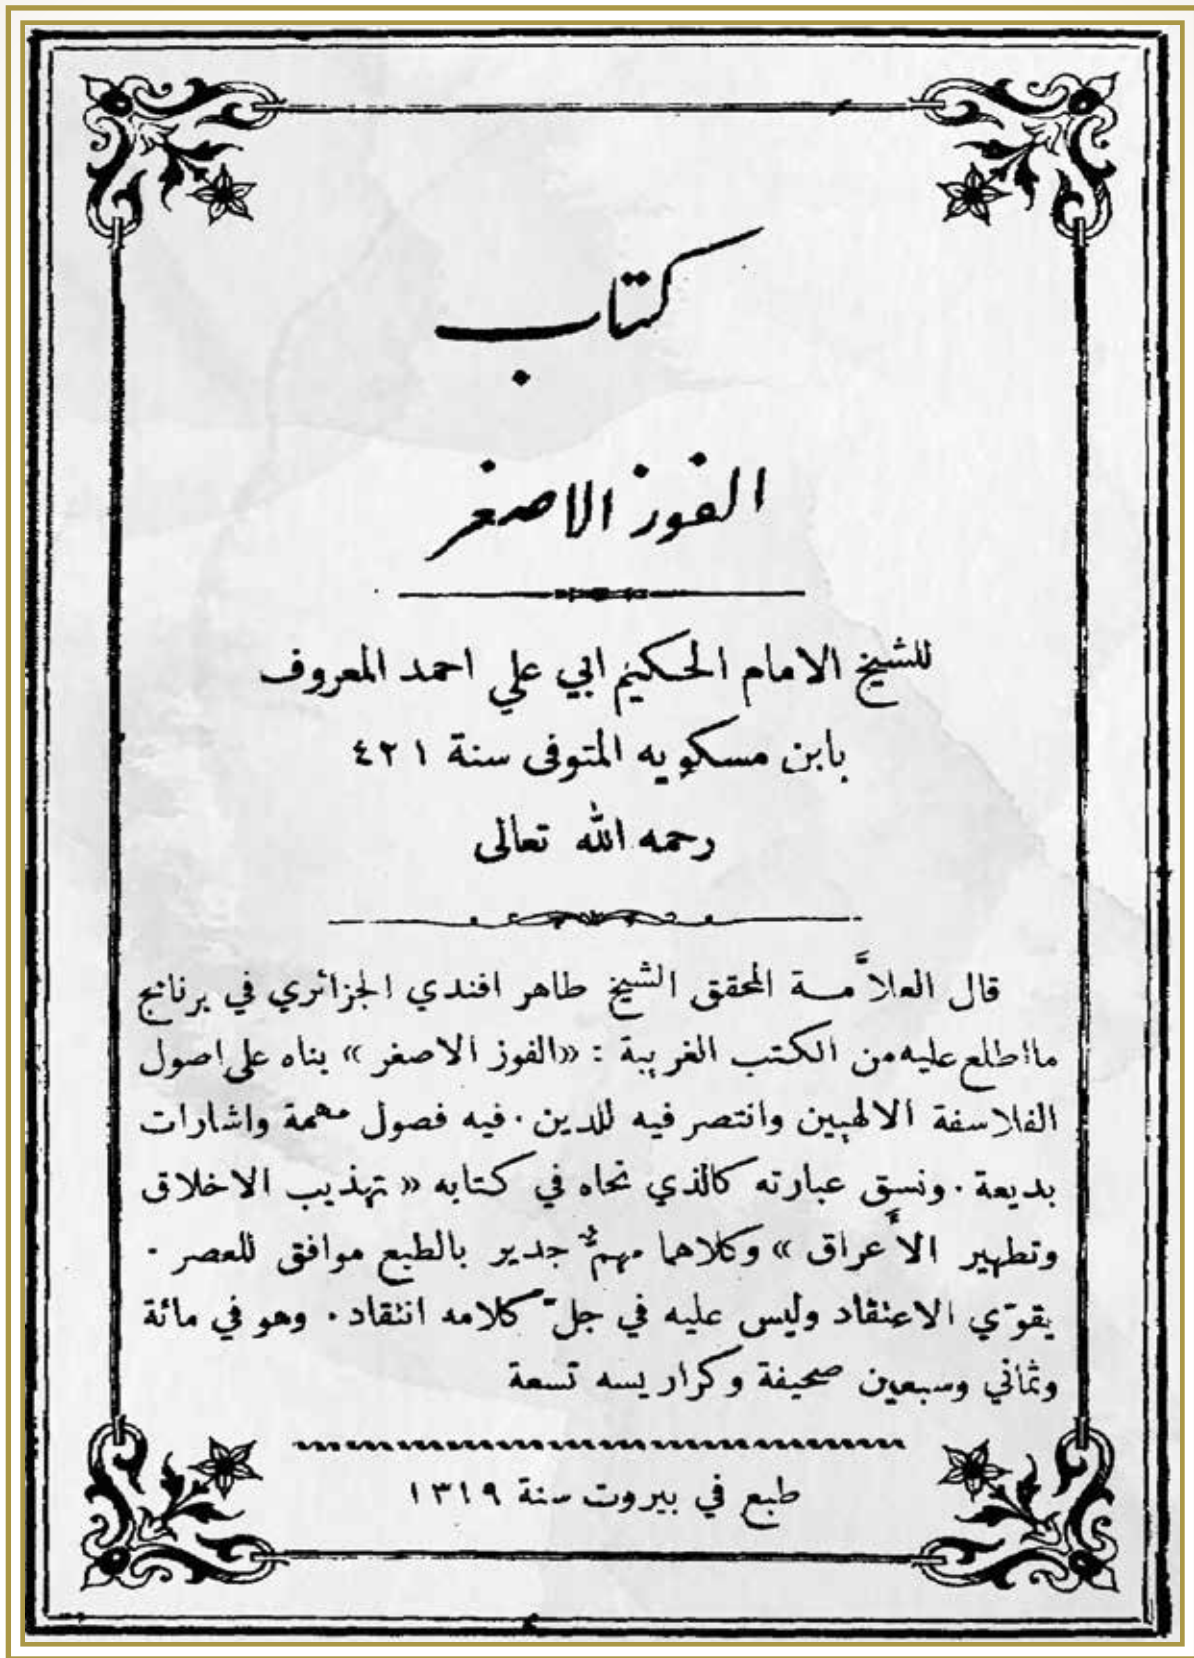 كتاب
الفوز الاصغر
للشيخ الامام الحكيم ابي علي احمد المعروف
بابن مسكويه المتوفى سنة ٤٢١
رحمه الله تعالى
قال العلاَّمـــة المحقق الشيخ طاهر افندي الجزائري في برنامج
ما اطلع عليه من الكتب الغريبة : «الفوز الاصغر» بناه على اصول
الفلاسفة الالهيين وانتصر فيه للدين . فيه فصول مهمة واشارات
بديعة . ونسق عبارته كالذي نحاه في كتابه « تهذيب الاخلاق
وتطهير الأَعراق » وكلاهما مهمٌّ جدير بالطبع موافق للعصر .
يقوّي الاعتقاد وليس عليه في جلّ كلامه انتقاد . وهو في مائة
وثماني وسبعين صحيفة وكراريسه تسعة
طبع في بيروت سنة ١٣١٩